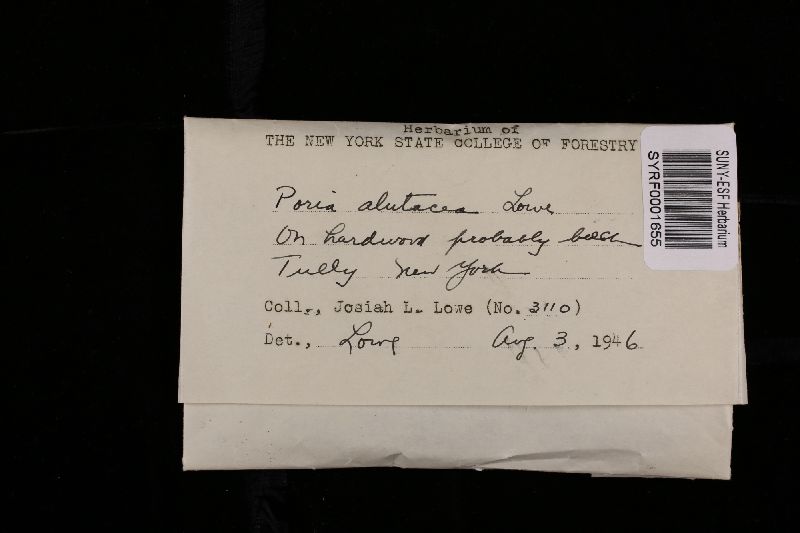 Herbarium of
THE NEW YORK STATE COLLEGE OF FORESTRY
Poria alutacea Lowe
On hardwood probably beech
Tully New York
Coll., Josiah L. Lowe (No. 3110)
Det., Lowe Aug. 3, 1946
SUNY-ESF Herbarium
SYRF0001655